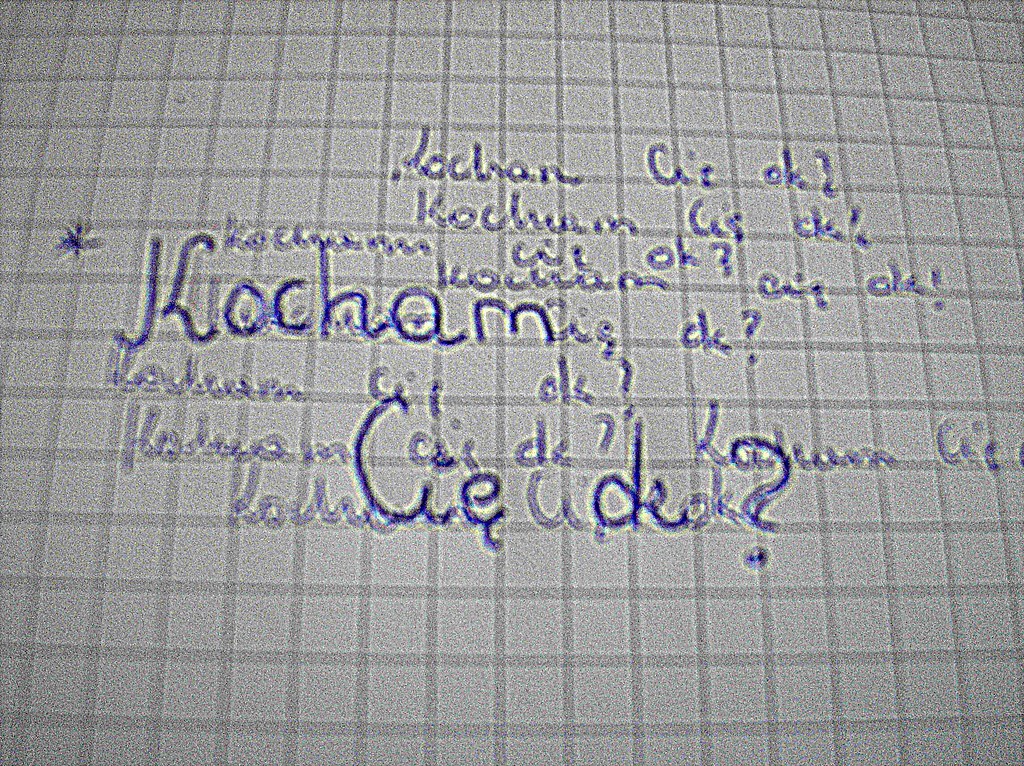 Kocham Cię ok?
Kocham Cię ok!
kocham cię ok?
kocham cię ok!
* Kocham
cię ok?
Kocham cię ok?
Kocham cię ok? Kocham Cię
Cię ok?
Kocham Cię ok